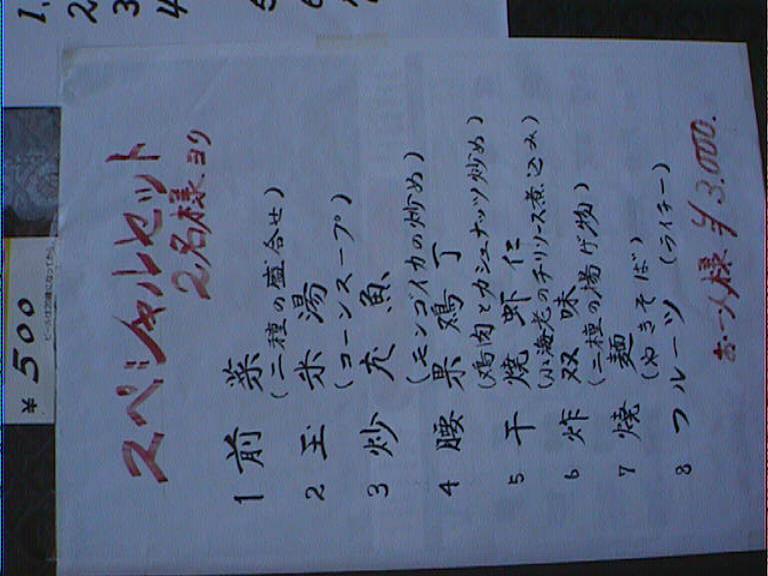 スペシャルセット
2名様ヨリ
1 前菜
(二種の盛合せ)
2 玉米湯
(コーンスープ)
3 炒尤魚
(モンゴイカの炒め)
4 腰果鶏丁
(鶏肉とカシュナッツ炒め)
5 干焼虾仁
(小海老のチリソース煮込み)
6 炸双味
(二種の揚げ物)
7 焼麺
(やきそば)
8 フルーツ (ライチー)
お一人様 ¥3,000.
¥500
1.
2
3
4
5
6